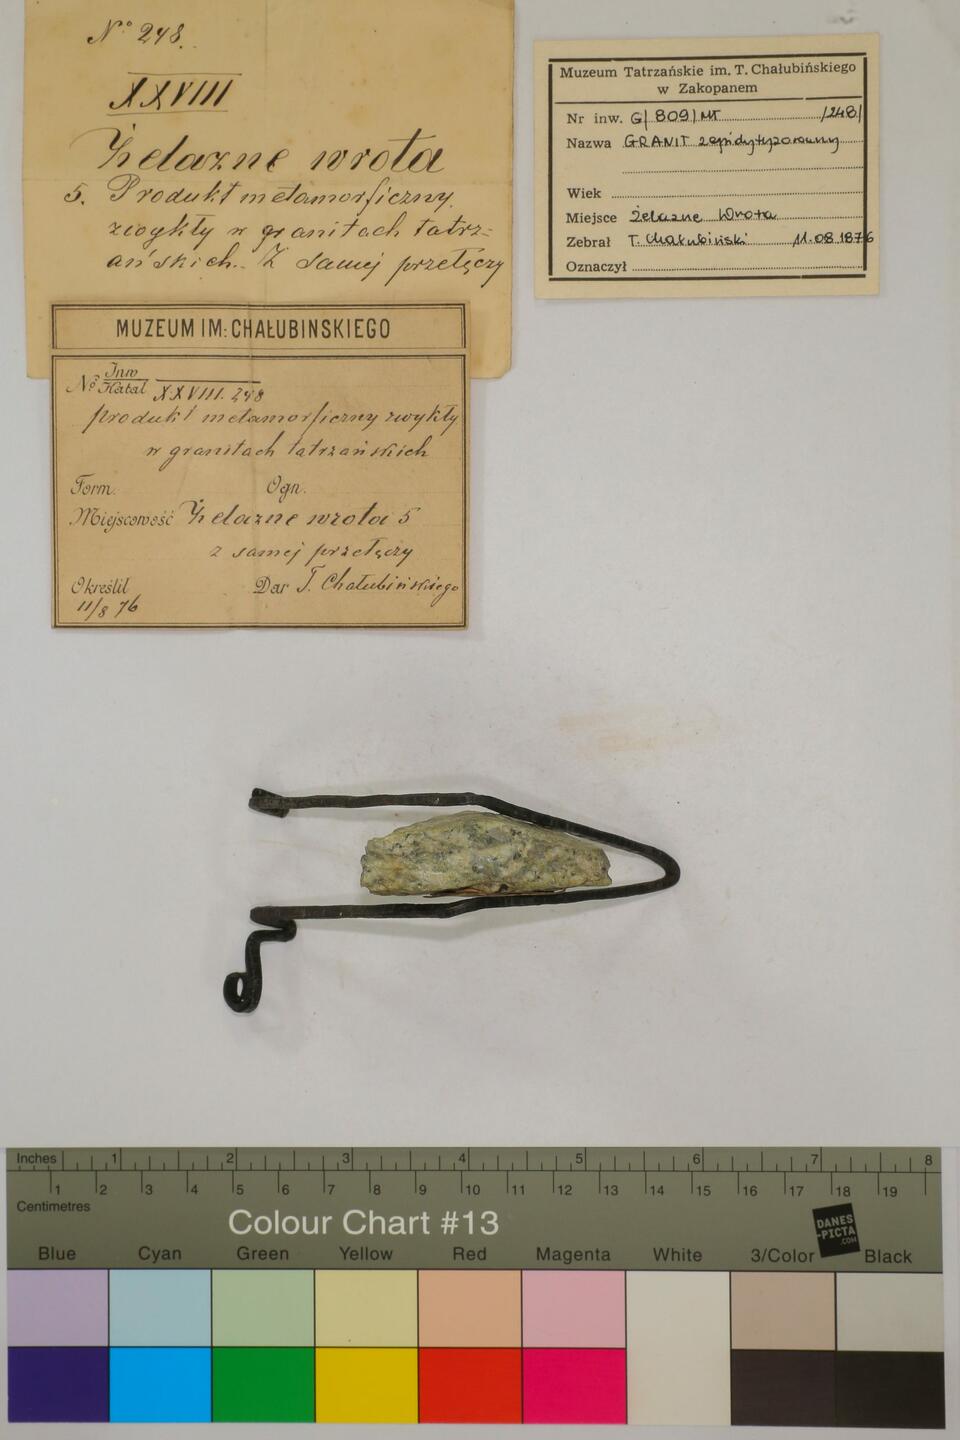 Nº 248.
XXVIII
Żelazne wrota
5. Produkt metamorficzny,
zwykły w granitach tatrz-
ańskich. Z samej przełęczy
MUZEUM IM: CHAŁUBINSKIEGO
Nº Inw
Katal XXVIII. 248
produkt metamorficzny zwykły
w granitach tatrzańskich
Form. Ogn.
Miejscowość Żelazne wrota 5
z samej przełęczy
Określił Dar T. Chałubińskiego
11/8 76
Muzeum Tatrzańskie im. T. Chałubińskiego
w Zakopanem
Nr inw. G/809/MT /248/
Nazwa GRANIT zepidotyzowany
Wiek
Miejsce Żelazne Wrota
Zebrał T. Chałubiński 11.08.1876
Oznaczył
Inches 1 2 3 4 5 6 7 8
1 2 3 4 5 6 7 8 9 10 11 12 13 14 15 16 17 18 19
Centimetres
Colour Chart #13
DANES
-PICTA
.COM
Blue Cyan Green Yellow Red Magenta White 3/Color Black